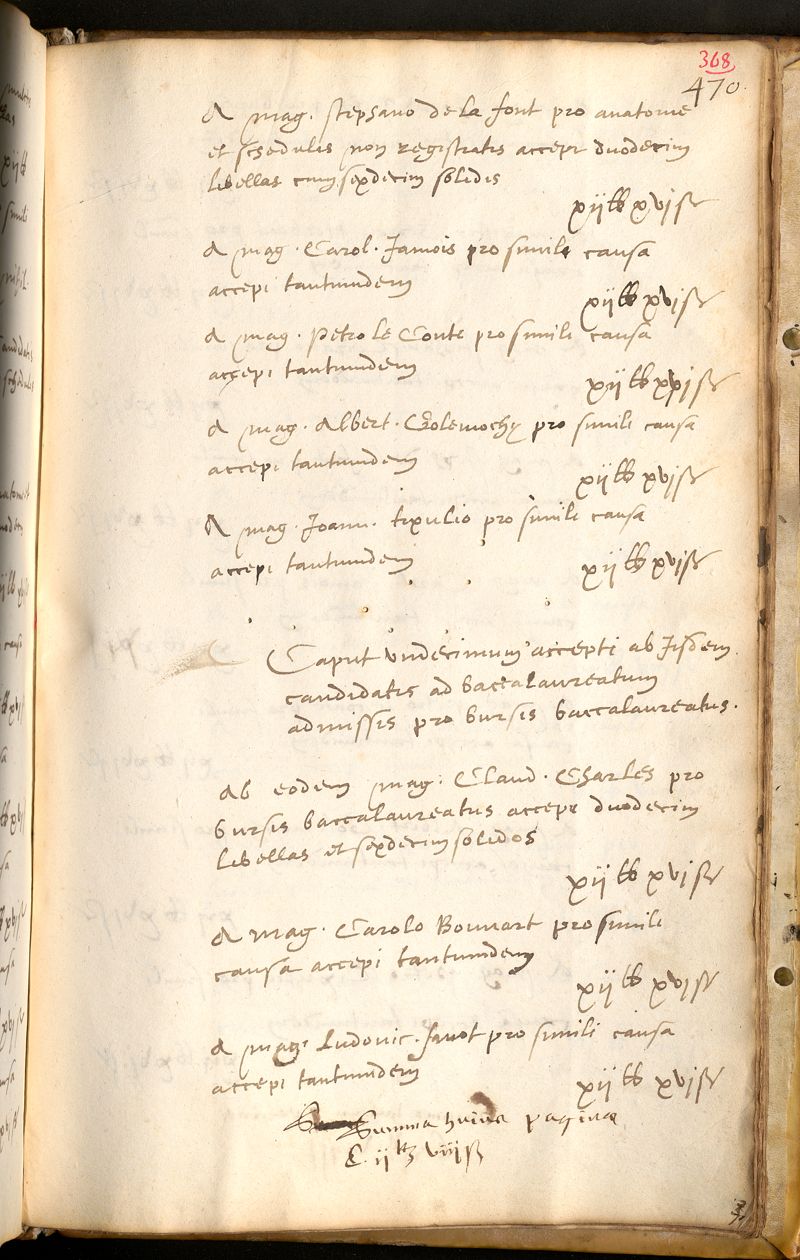 368
470
A mag. stephano de la font pro anatome
et schedulis non registratis accepi duodecim
libellas cum sexdecim solidis
xij lb xvj ß
A mag. Carol. Jamois pro simili causa
accepi tantumdem
xij lb xvj ß
A mag. Petro le Conte pro simili causa
accepi tantumdem
xij lb xvj ß
A mag. Albert. pro simili causa
accepi tantumdem
xij lb xvj ß
A mag. Joann. txulio pro simili causa
accepi tantumdem
xij lb xvj ß
Caput undecimum accepti ab Iisdem
candidatis ad baccalaureatum
admissis pro bursis baccalaureatus.
Ab eodem mag. Claud. Charles pro
bursis baccalaureatus accepi duodecim
libellas et sexdecim solidos
xij lb xvj ß
A mag. Carolo Bouvart pro simili
causa accepi tantumdem
xij lb xvj ß
A mag. Ludovic. favot pro simili causa
accepi tantumdem
xij lb xvj ß
Summa huius paginae
C ij lb viij ß